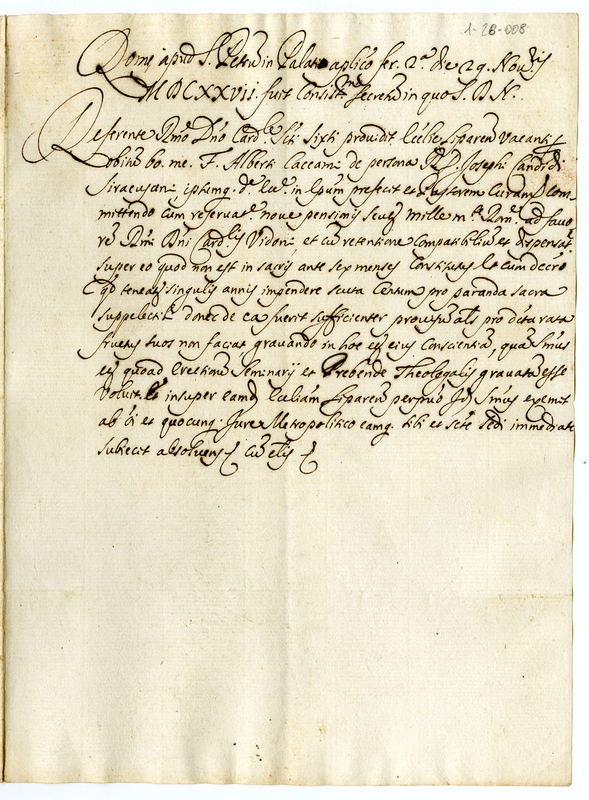 1-28-008
Rome apud S. Petrū in Palatio aplico fer. 2ª die 29. Novris
MDCXXVII. fuit Consistm secretū in quo S. D. N.
Referente Rmo Dno Cardle Scti Sixti providit Ecclie Liparen Vacanti p
obitū bo. me. F. Alberti Caccami de persona R. D. Josephi Candidi
Siracusani ipsumq. in Epum prefecit et Pastorem Curam Com
mittendo Cum reservate nove pensionis mille ad favo
rē Rmi Dni Cardlis Vidoni et cū retentione Compatibiliū et dispensat
super eo quod non est in sacris ante sex menses Constitutus et cum decro
qd teneat singulis annis impendere scuta Centum pro paranda sacra
suppelectili donec de ea fuerit sufficienter provisū als pro dcta rata
fructus suos non faciat gravando in hoc ejus Conscientiā, quā Smus
ej quoad erectionē Seminarij et Prebende Theologalis gravatā esse
Voluit et insuper eamd Eccliam Liparen perpetuo Smus exemit
ab oi et quocunq. Jure Metropolitico eamq. sibi et Scte Sedi immediate
subiecit absolvens Cū clis